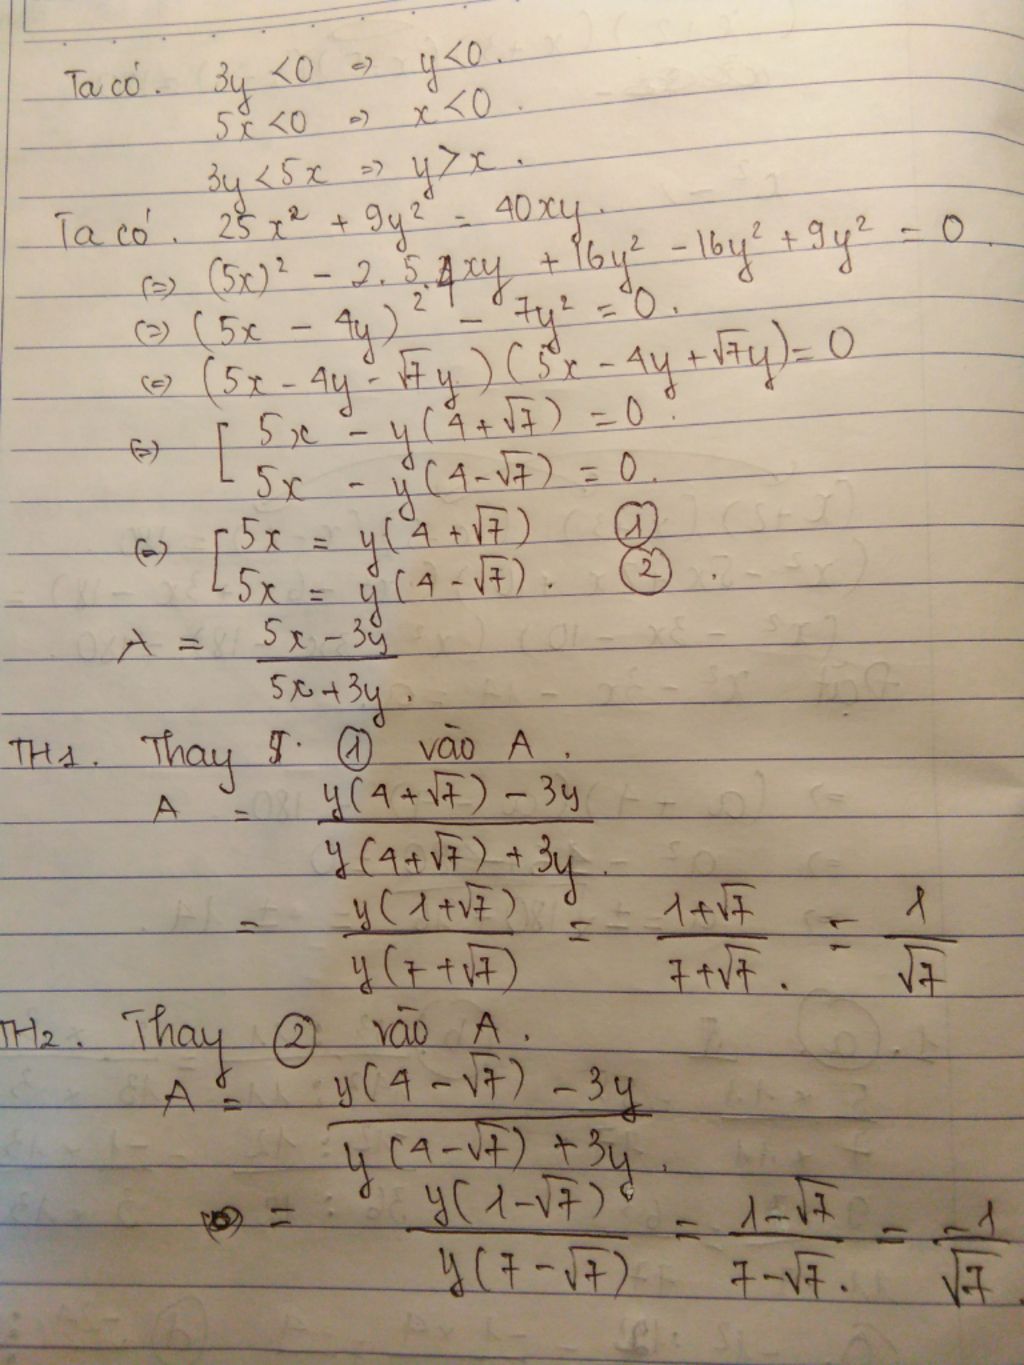 Ta có. 3y < 0 => y < 0.
5x < 0 => x < 0.
3y < 5x => y > x.
Ta có. 25x² + 9y² = 40xy.
(=) (5x)² - 2.5.4xy + 16y² - 16y² + 9y² = 0.
(=) (5x - 4y)² - 7y² = 0.
(=) (5x - 4y - √7y)(5x - 4y + √7y) = 0
(=) [ 5x - y(4+√7) = 0.
5x - y(4-√7) = 0.
(=) [ 5x = y(4+√7) ①
5x = y(4-√7). ② .
A = (5x - 3y)/(5x + 3y).
TH1. Thay ① vào A.
A = (y(4+√7) - 3y)/(y(4+√7) + 3y).
= (y(1+√7))/(y(7+√7)) = (1+√7)/(7+√7). = 1/√7
TH2. Thay ② vào A.
A = (y(4-√7) - 3y)/(y(4-√7) + 3y).
= (y(1-√7))/(y(7-√7)) = (1-√7)/(7-√7). = -1/√7.